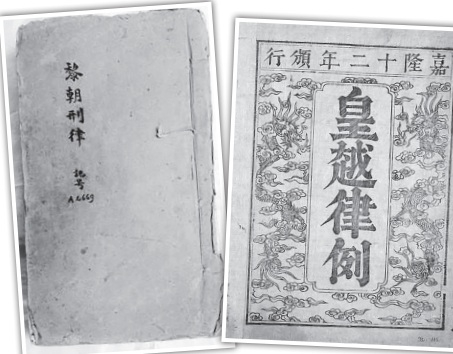 黎朝刑律
記号
A 1669
嘉隆十二年頒行
皇越律例